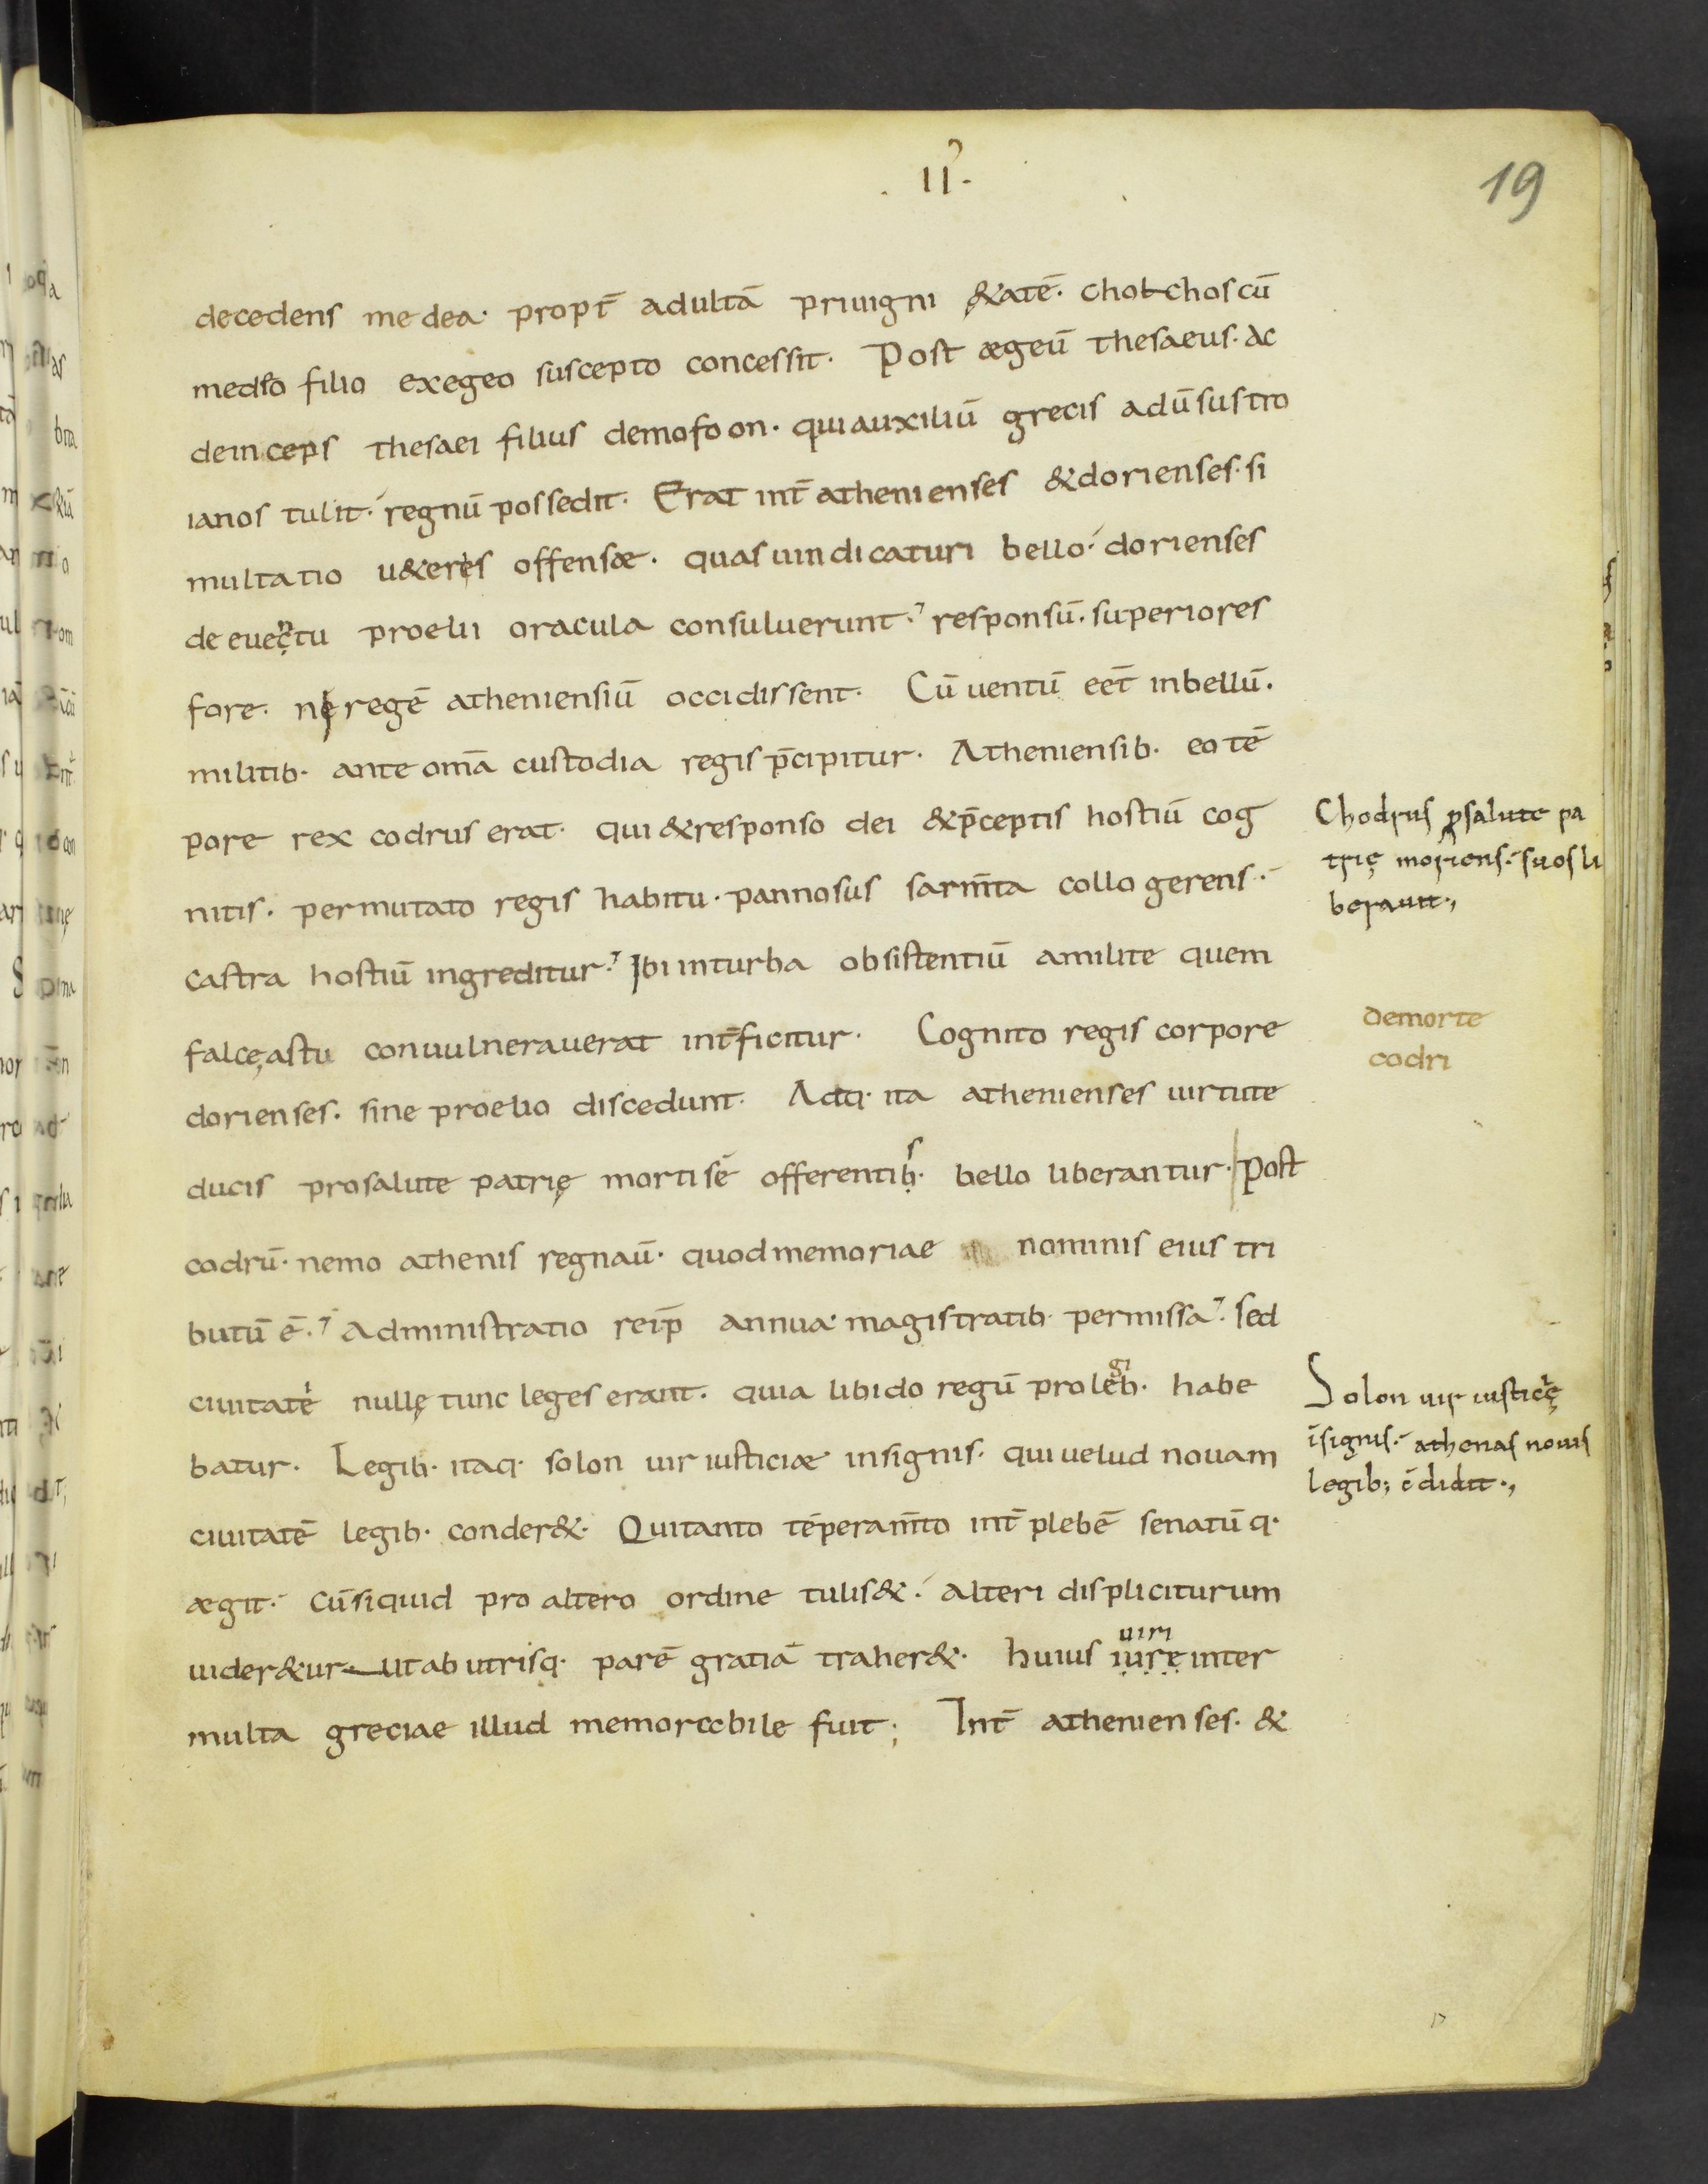 .II.
19
decedens medea· propt̄ adultā priuigni &atē· cholchos cū
medio filio exegeo suscepto concessit· Post ægeū thesaeus· ac
deinceps thesaei filius demofoon· qui auxiliū grecis aduūsus tro
ianos tulit· regnū possedit· Erat int̄ athenienses & dorienses· si
multatio u&eres offensæ· quas uindicaturi bello· dorienses
de euenctu proelii oracula consuluerunt· responsū· superiores
fore· ni regē atheniensiū occidissent· Cū uentū eēt inbellū·
militib· ante omā custodia regis p̄cipitur· Atheniensib· eo tē
pore rex codrus erat· qui & responso dei & p̄ceptis hostiū cog
nitis· permutato regis habitu· pannosus sarm̄ta collo gerens·
castra hostiū ingreditur· Ibi inturba obsistentiū amilite quem
falce astu conuulnerauerat int̄ficitur· Cognito regis corpore
dorienses· sine proelio discedunt· Adq· ita athenienses uirtute
ducis prosalute patrię morti sē offerentibs· bello liberantur· Post
codrū· nemo athenis regnaū· quod memoriae nominis eius tri
butū ē· Administratio reip̄ annua magistratib· permissa· sed
ciuitati nullę tunc leges erant· quia libido regū pro legib· habe
batur· Legib· itaq· solon uir iusticiæ insignis· qui uelud nouam
ciuitatē legib· conder&· Qui tanto tēperam̄to int̄ plebē senatūq·
ægit· Cū siquid pro altero ordine tulis&· alteri displiciturum
uider&ur ut ab utrisq· parē gratiā traher&· huius uiri iure inter
multa greciae illud memorabile fuit; Int̄ athenienses· &
Chodrus ꝓsalute pa
trię moriens· suos li
berauit·,
demorte
codri
Solon uir iusticię
īsignis· athenas nouis
legib; ēdidit·,